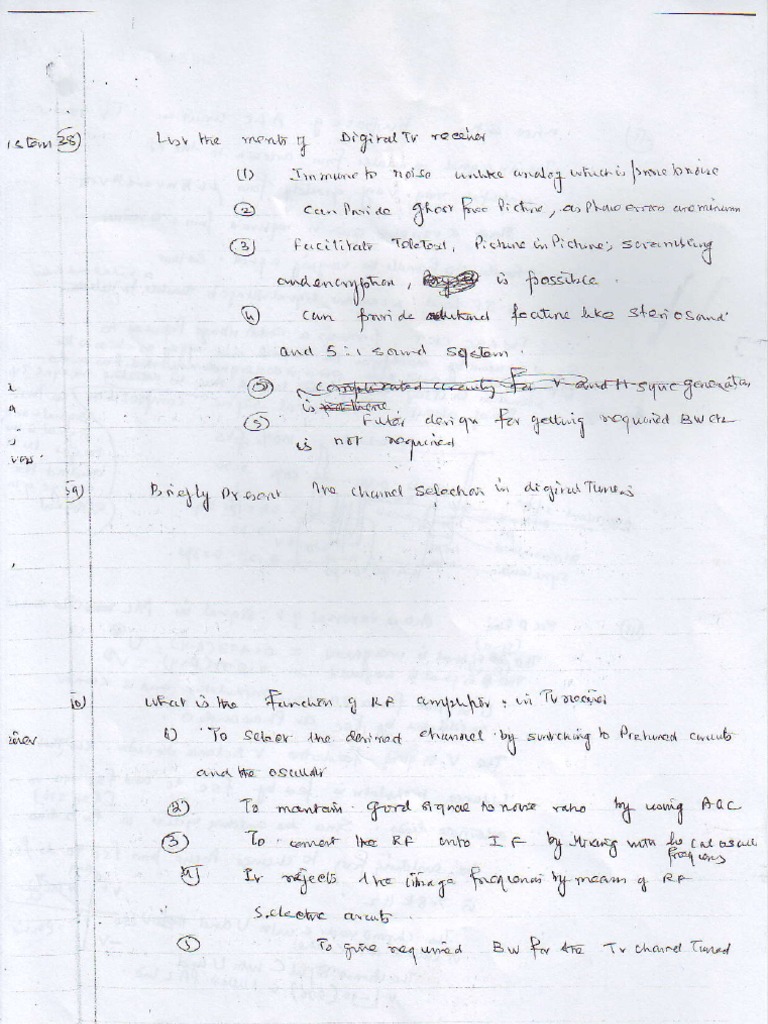 38) List the merits of Digital Tv receiver
(1) Immune to noise unlike analog which is prone to noise
(2) can Provide ghost free Picture, as Phase errors are minimum
(3) Facilitate Teletext, Picture in Picture, scrambling
and encryption, is possible.
can provide feature like sterio sound
and 5:1 sound system.
(5) Complicated circuitry for V and H sync generation
is
(5) Filter design for getting required BW
is not required
39) Briefly Present the channel selection in digital Tuners
What is the function of RF amplifier in Tv receiver
1) To select the desired channel by switching to Pretuned circuits
and the oscillator
(2) To maintain good signal to noise ratio by using AGC
(3) To convert the RF into IF by Mixing with local oscill
frequency
4) It rejects the image frequencies by means of RF
Selective circuits
To give required BW for the Tv channel Tuned